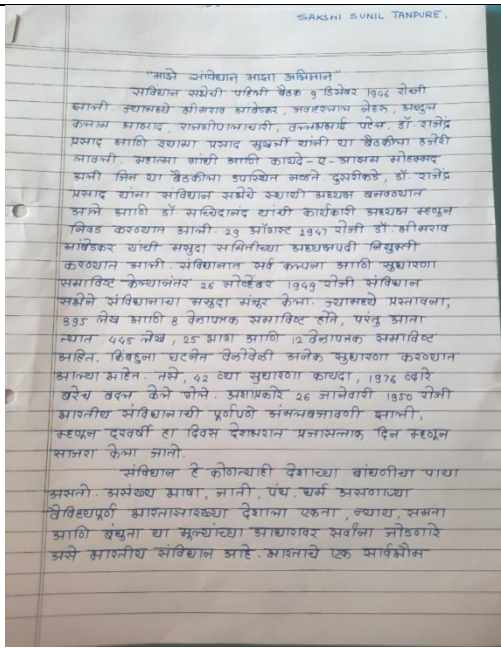 SAKSHI SUNIL TANPURE.
"माझे संविधान माझा अभिमान"
संविधान सभेची पहिली बैठक 9 डिसेंबर 1946 रोजी
झाली. ज्यामध्ये भीमराव आंबेडकर, जवाहरलाल नेहरू, अब्दुल
कलाम आझाद, राजगोपालाचारी, वल्लभभाई पटेल, डॉ. राजेंद्र
प्रसाद आणि श्यामा प्रसाद मुखर्जी यांनी या बैठकीला हजेरी
लावली. महात्मा गांधी आणि कायदे-ए-आझम मोहम्मद
अली जिना या बैठकीला उपस्थित नव्हते दुसरीकडे, डॉ. राजेंद्र
प्रसाद यांना संविधान सभेचे स्थायी अध्यक्ष बनवण्यात
आले आणि डॉ. सच्चिदानंद यांची कार्यकारी अध्यक्ष म्हणून
निवड करण्यात आली. 29 ऑगस्ट 1947 रोजी डॉ. भीमराव
आंबेडकर यांची मसुदा समितीच्या अध्यक्षपदी नियुक्ती
करण्यात आली. संविधानात सर्व कल्पना आणि सुधारणा
समाविष्ट केल्यानंतर 26 नोव्हेंबर 1949 रोजी संविधान
सभेने संविधानाचा मसुदा मंजूर केला. ज्यामध्ये प्रस्तावना,
395 लेख आणि 8 वेळापत्रक समाविष्ट होते, परंतु आता
त्यात 445 लेख, 25 भाग आणि 12 वेळापत्रक समाविष्ट
आहेत. किंबहुना घटनेत वेळोवेळी अनेक सुधारणा करण्यात
आल्या आहेत. तसे, 42 व्या सुधारणा कायदा, 1976 व्दारे
बरेच बदल केले गेले. अशाप्रकारे 26 जानेवारी 1950 रोजी
भारतीय संविधानाची पूर्णपणे अंमलबजावणी झाली,
म्हणून दरवर्षी हा दिवस देशभरात प्रजासत्ताक दिन म्हणून
साजरा केला जातो.
संविधान हे कोणत्याही देशाच्या बांधणीचा पाया
असतो. असंख्य भाषा, जाती, पंथ, धर्म असणाऱ्या
वैविध्यपूर्ण भारतासारख्या देशाला एकता, न्याय, समता
आणि बंधुता या मूल्यांच्या आधारावर सर्वांना जोडणारे
असे भारतीय संविधान आहे. भारताचे एक सार्वभौम